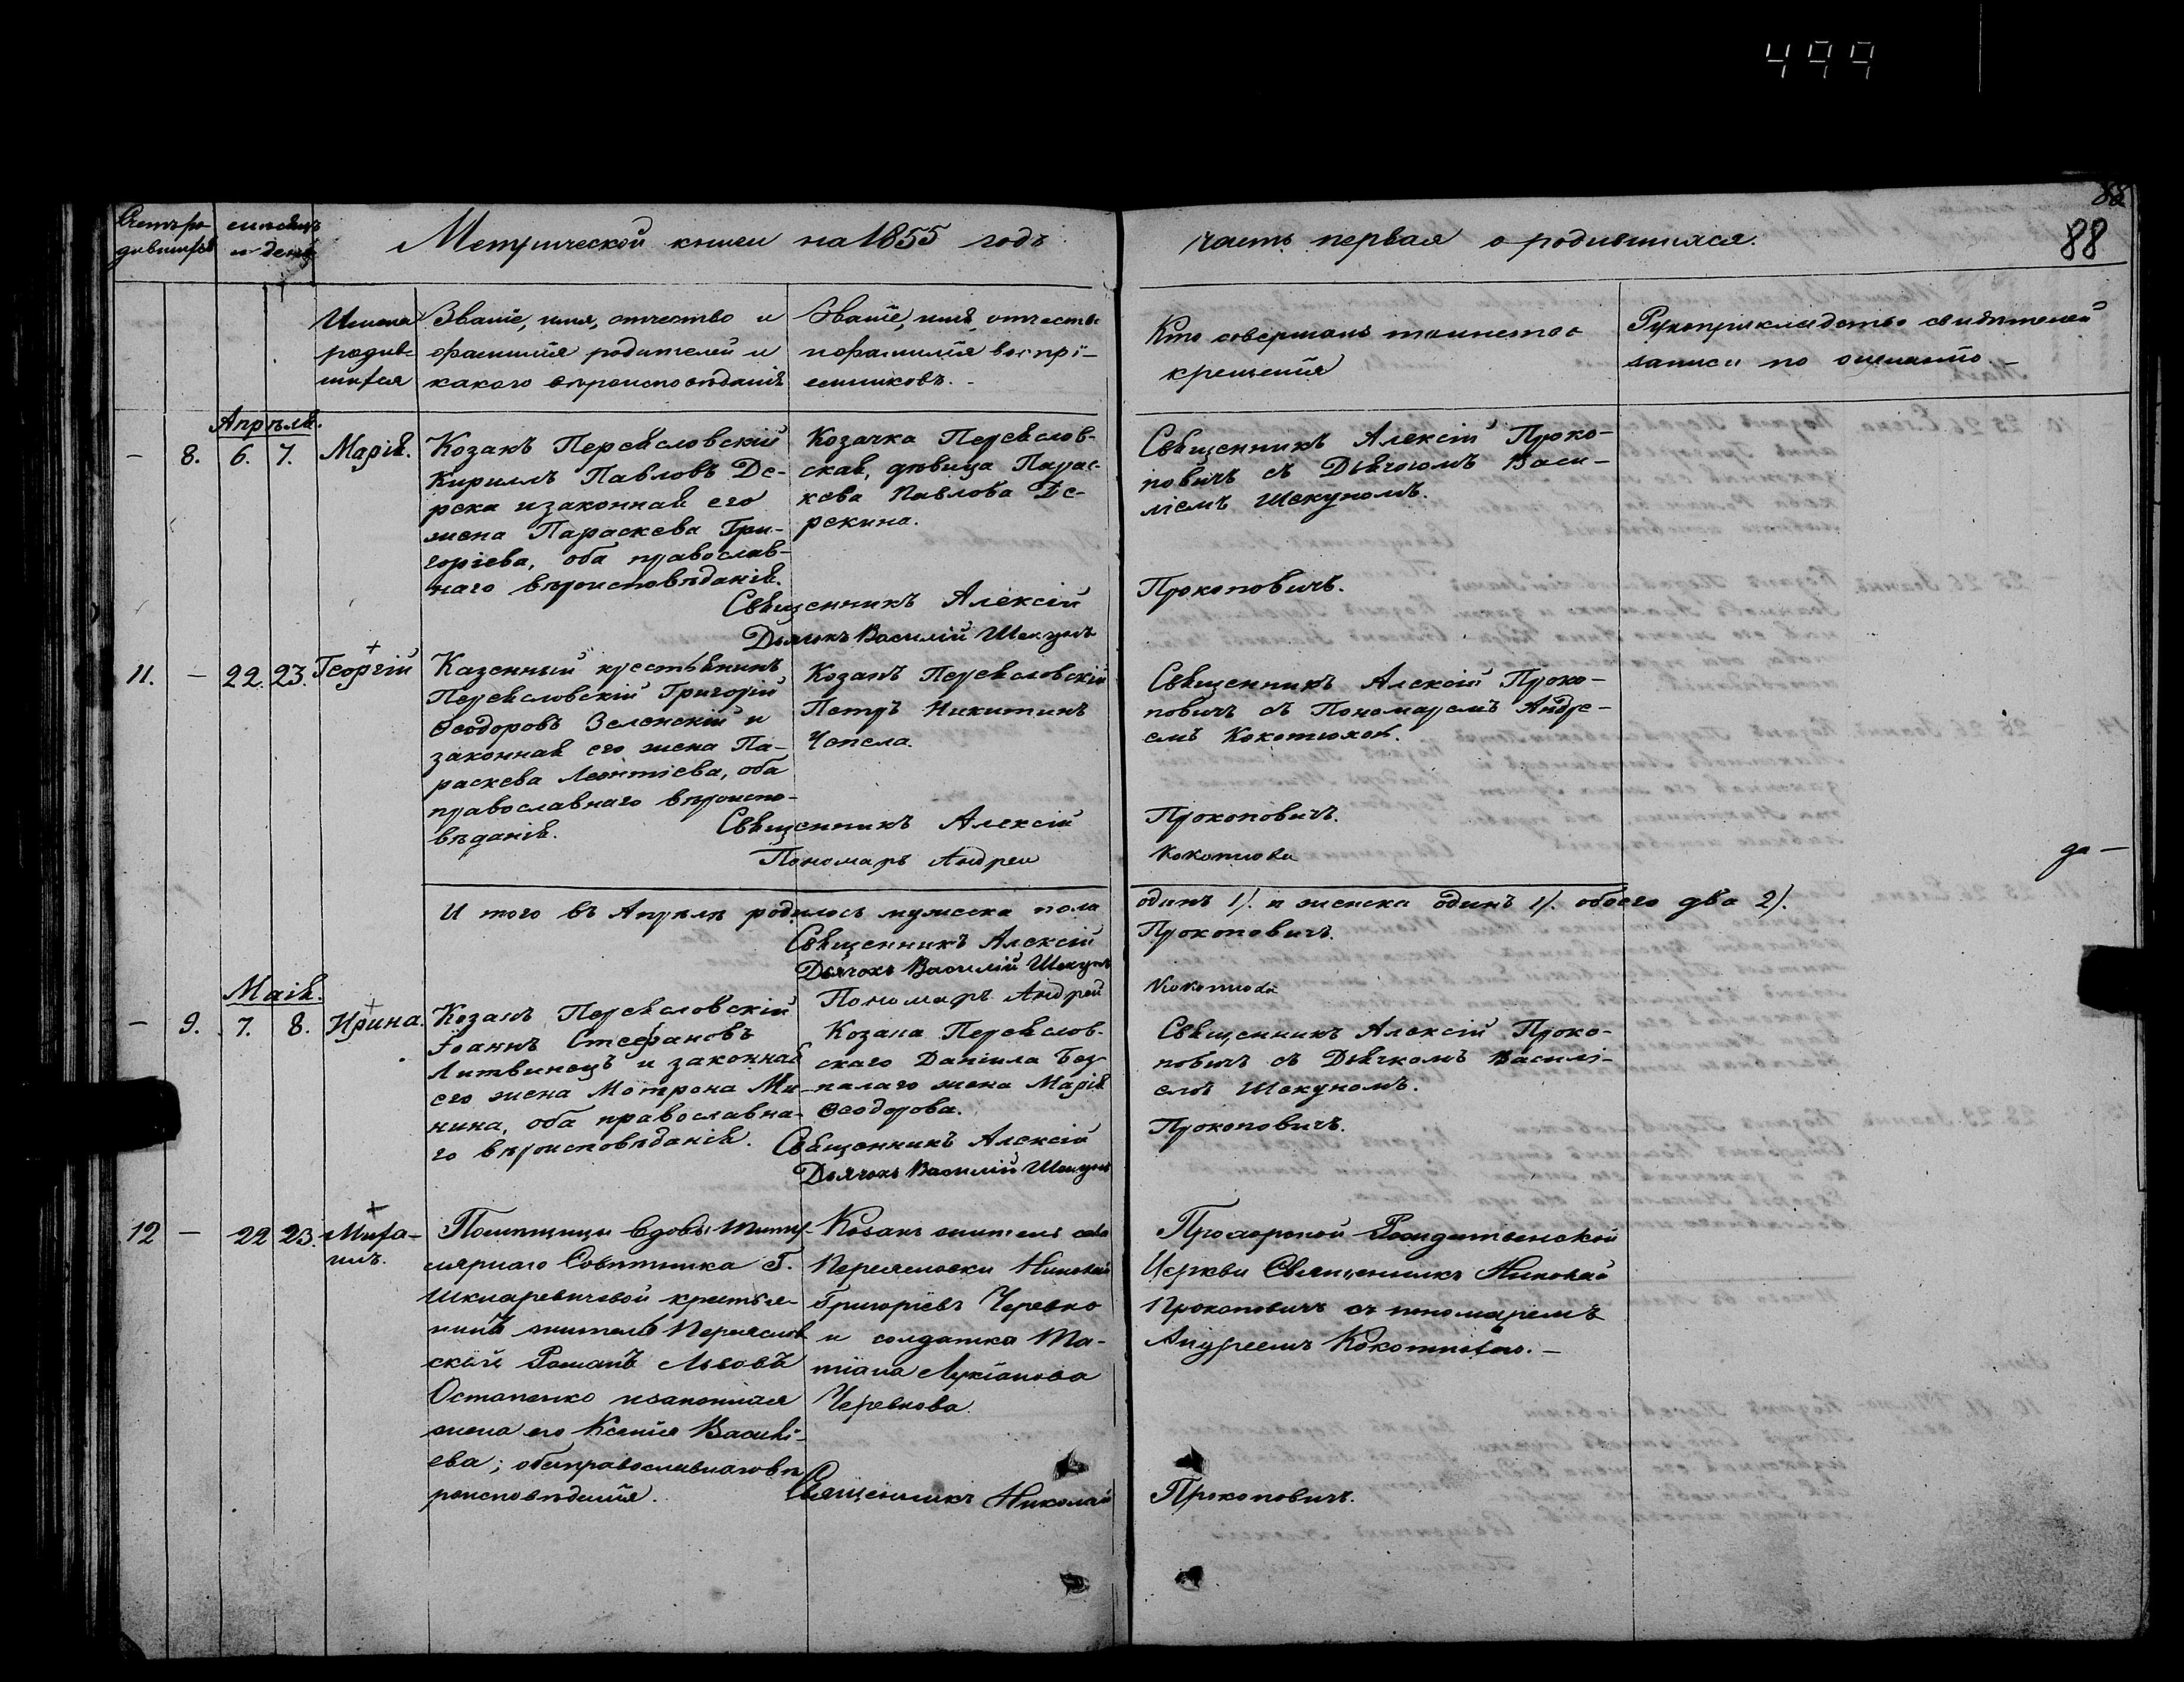 499
88
88
Счетъ ро- мѣсяцъ
дившихся и день
Метрической книги на 1855 годъ
часть первая о родившихся.
Имена
родив-
шихся
Званіе, имя, отчество и
фамилія родителей и
какого вѣроисповѣданія
Званіе, имя, отчество
и фамилія воспрі-
емниковъ.
Кто совершалъ таинство
крещенія
Рукоприкладство свидѣтелей
записи по желанію.
Апрѣля.
– 8. 6. 7. Марія.
Козакъ Переясловскій
Кирилъ Павловъ Де-
река и законная его
жена Параскева Гри-
горіева, оба православ-
наго вѣроисповѣданія.
Козачка Переяслов-
ская, дѣвица Парас-
кева Павлова Де-
рекина.
Священникъ Алексій Проко-
повичъ съ Дьячкомъ Васи-
ліемъ Шекуномъ.
Священникъ Алексій Прокоповичъ.
Дьячокъ Василій Шекунъ
11. – 22. 23. Георгій
Казенный крестьянинъ
Переясловскій Григорій
Ѳеодоровъ Зеленскій и
законная его жена Па-
раскева Леонтіева, оба
православнаго вѣроиспо-
вѣданія.
Козакъ Переясловскій
Петръ Никитинъ
Чепела.
Священникъ Алексій Проко-
повичъ съ Пономаремъ Андре-
емъ Кокотюхою.
Священникъ Алексій Прокоповичъ.
Пономаръ Андреи Кокотюха
да —
И того въ Апрѣлѣ родилось мужеска пола одинъ 1/. и женска одинъ 1/. обоего два 2/.
Священникъ Алексій Прокоповичъ.
Дьячокъ Василій Шекунъ
Пономаръ Андрей Кокотюха
Маія.
– 9. 7. 8. Ирина.
Козакъ Переясловскій
Іоаннъ Стефановъ
Литвинецъ и законная
его жена Мотрона Ми-
нина, оба православна-
го вѣроисповѣданія.
Козака Переяслов-
скаго Даніила Без-
палаго жена Марія
Ѳеодорова.
Священникъ Алексій Проко-
повичъ съ Дьячкомъ Василі-
емъ Шекуномъ.
Священникъ Алексій Прокоповичъ.
Дьячокъ Василій Шекунъ
12 – 22 23. Миха-
илъ.
Помѣщицы вдовы Титу-
лярнаго Совѣтника Г.
Шкляревичевой крестья-
нинъ житель Переяслов
скій Романъ Львовъ
Остапенко и законная
жена его Ксенія Василі-
ева; оба православнаго вѣ
роисповѣданія.
Козакъ житель села
Переясловки Николай
Григоріевъ Черевко
и солдатка Та-
тіана Лукіанова
Черевкова.
Рождественской
Церкви Священникъ Николай
Прокоповичъ съ пономаремъ
Андреемъ Кокотюхою. –
Священникъ Николай Прокоповичъ.